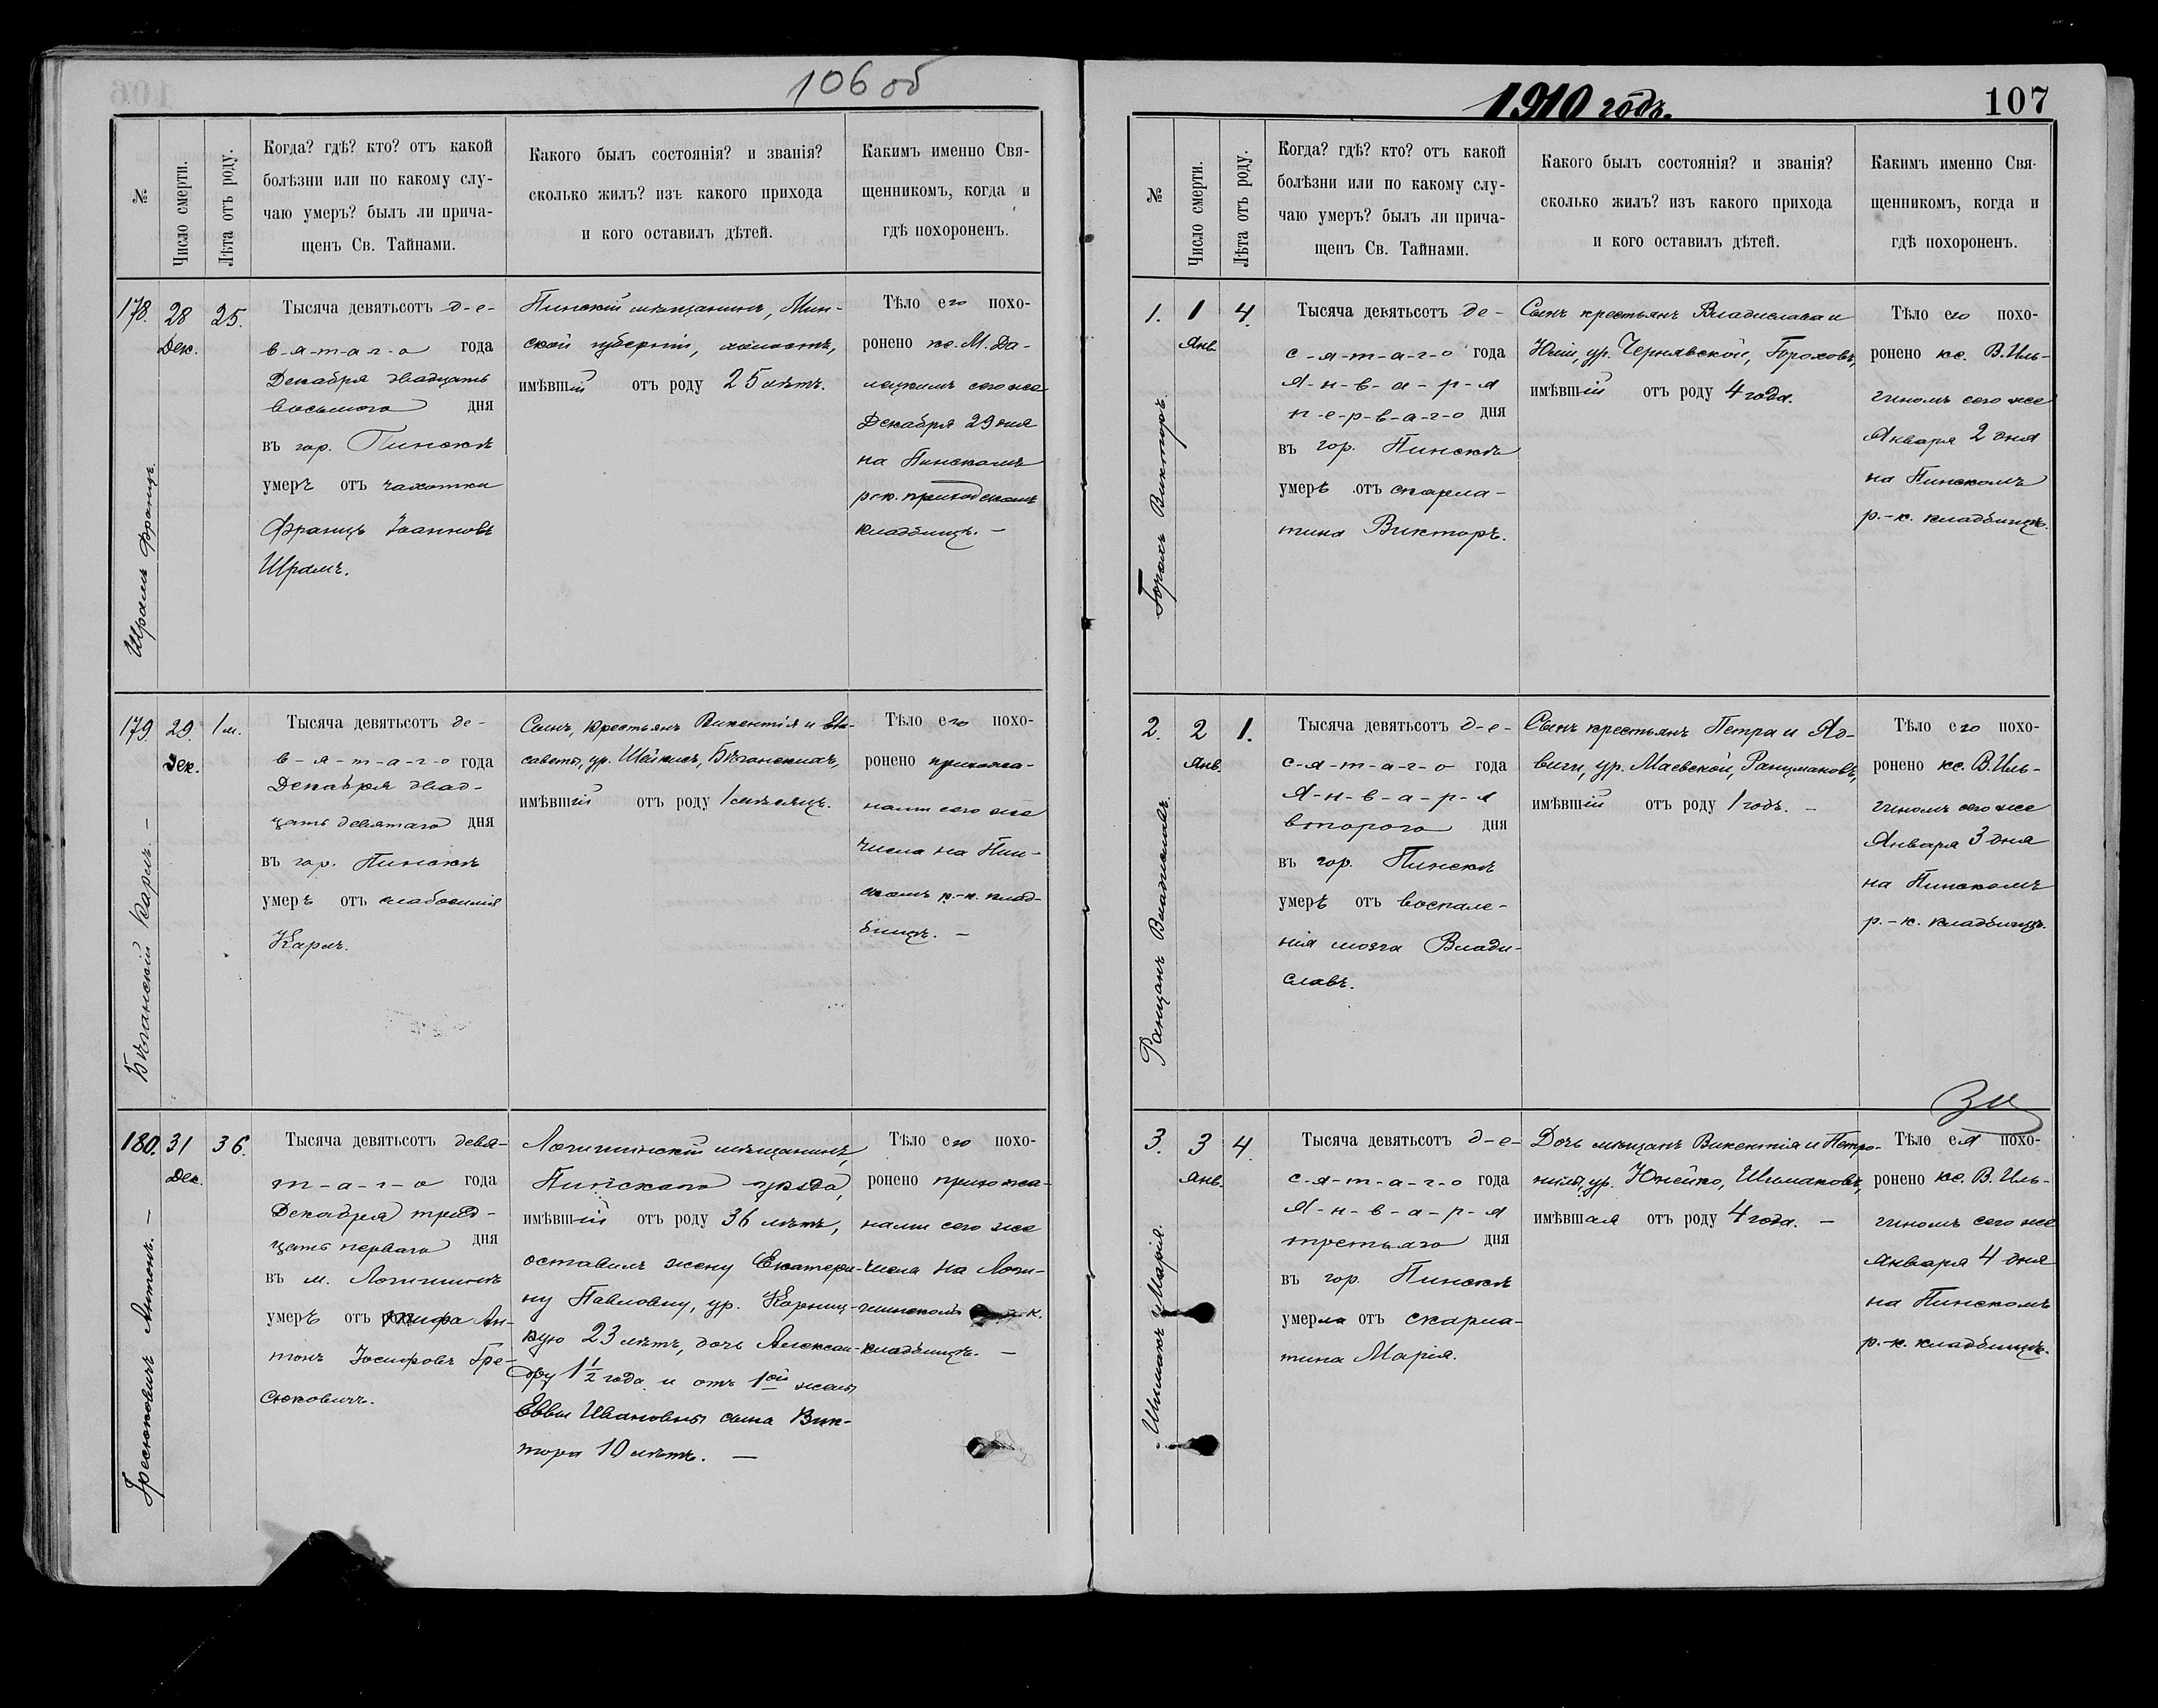 106 об
№
Число смерти.
Лѣта отъ роду.
Когда? гдѣ? кто? отъ какой
болѣзни или по какому слу-
чаю умеръ? былъ ли прича-
щенъ Св. Тайнами.
Какого былъ состоянія? и званія?
сколько жилъ? изъ какого прихода
и кого оставилъ дѣтей.
Какимъ именно Свя-
щенникомъ, когда и
гдѣ похороненъ.
178.
Шрамъ Францъ.
28
Дек.
25.
Тысяча девятьсотъ д-е-
в-я-т-а-г-о года
Декабря двадцать
восьмого дня
въ гор. Пинскѣ
умеръ отъ чахотки
Францъ Іоанновъ
Шрамъ.
Пинскій мѣщанинъ, Мин-
ской губерніи, холостъ,
имѣвшій отъ роду 25 лѣтъ.
Тѣло его похо-
ронено кс. М. Да-
лецкимъ сего же
Декабря 29 дня
на Пинскомъ
р-к. приходскомъ
кладбищѣ. –
179.
Бѣганскій Карлъ. –
29.
Дек.
1 м.
Тысяча девятьсотъ де-
в-я-т-а-г-о года
Декабря двад-
цать девятаго дня
въ гор. Пинскѣ
умеръ отъ слабосилія
Карлъ.
Сынъ, крестьянъ Викентія и Ели-
саветы, ур. Шейкисъ, Бѣганскихъ,
имѣвшій отъ роду 1 мѣсяцъ.
Тѣло его похо-
ронено прихожа-
нами сего же
числа на Пин-
скомъ р.-к. клад-
бищѣ. –
180.
Гресюковичъ Антонъ. –
31
Дек.
36.
Тысяча девятьсотъ девя-
т-а-г-о года
Декабря трид-
цать перваго дня
въ м. Логишинѣ
умеръ отъ тифа Ан-
тонъ Іосифовъ Гре-
сюковичъ.
Логишинскій мѣщанинъ,
Пинскаго уѣзда,
имѣвшій отъ роду 36 лѣтъ,
оставилъ жену Екатери-
ну Павловну, ур. Корниц-
кую 23 лѣтъ, дочь Алексан-
дру 1½ года и отъ 1ой жены
Еввы Ивановны сына Вик-
тора 10 лѣтъ. –
Тѣло его похо-
ронено прихожа-
нами сего же
числа на Логи-
шинскомъ к.
кладбищѣ. –
1910 годъ.
107
№
Число смерти.
Лѣта отъ роду.
Когда? гдѣ? кто? отъ какой
болѣзни или по какому слу-
чаю умеръ? былъ ли прича-
щенъ Св. Тайнами.
Какого былъ состоянія? и званія?
сколько жилъ? изъ какого прихода
и кого оставилъ дѣтей.
Какимъ именно Свя-
щенникомъ, когда и
гдѣ похороненъ.
1.
Горохъ Викторъ.
1
Янв.
4.
Тысяча девятьсотъ де-
с-я-т-а-г-о года
Я-н-в-а-р-я
п-е-р-в-а-г-о дня
въ гор. Пинскѣ
умеръ отъ скарла-
тина Викторъ.
Сынъ крестьянъ Владислава и
Юліи, ур. Чернявской, Гороховъ,
имѣвшій отъ роду 4 года.
Тѣло его похо-
ронено кс. В. Иль-
гиномъ сего же
Января 2 дня
на Пинскомъ
р.-к. кладбищѣ.
2.
Ранцманъ Владиславъ.
2
Янв.
1.
Тысяча девятьсотъ д-е-
с-я-т-а-г-о года
Я-н-в-а-р-я
второго дня
въ гор. Пинскѣ
умеръ отъ воспале-
нія мозга Влади-
славъ.
Сынъ крестьянъ Петра и Яд-
виги, ур. Маевской, Ранцмановъ,
имѣвшій отъ роду 1 годъ. –
Тѣло его похо-
ронено кс. В. Иль-
гиномъ сего же
Января 3 дня
на Пинскомъ
р.-к. кладбищѣ.
3.
Шлыманъ Марія.
3
Янв.
4
Тысяча девятьсотъ д-е-
с-я-т-а-г-о года
Я-н-в-а-р-я
третьяго дня
въ гор. Пинскѣ
умерла отъ скарла-
тина Марія.
Дочь мѣщанъ Викентія и Петро-
нилы, ур. Юнейко, Шлымановъ,
имѣвшая отъ роду 4 года. –
Тѣло ея похо-
ронено кс. В. Иль-
гиномъ сего же
Января 4 дня
на Пинскомъ
р.-к. кладбищѣ.